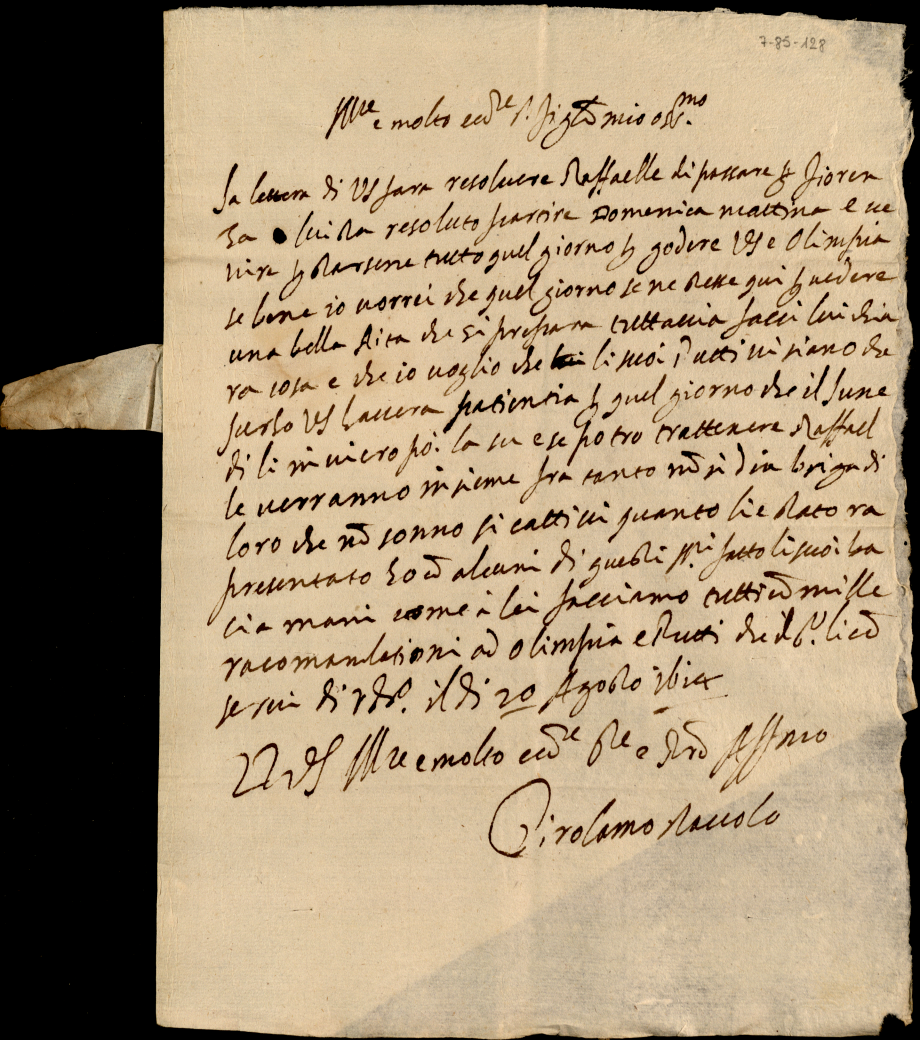 7-85-128
Ill.re e molto ecc.te S. Sig.r mio oss.mo
La lettera di VS fara resoluere Raffaelle di passare p Fioren
za lui sta resoluto partire Domenica mattina e ue
nire p starsene tutto quel giorno p godere VS e Olimpia
se bene io uorrei che quel giorno se ne stesse qui p uedere
una bella che si prepara tuttauia facci lui chia
ra cosa e che io uoglio che li suoi ui siano che
VS hauera patientia p quel giorno che il lune
di li inuiero poi la su e se potro trattenere Raffael
le uerranno insieme fra tanto nō si dia briga di
loro che nō sonno si cattiui quanto li e stato ra
presentato con alcuni di questi fatto li suoi ba
cia mani come à lei facciamo tutti cō mille
racomandationi ad Olimpia e tutti che il S.r li cō
serui di il di 20 Agosto
Di VS Ill.re e molto ecc.te
Girolamo